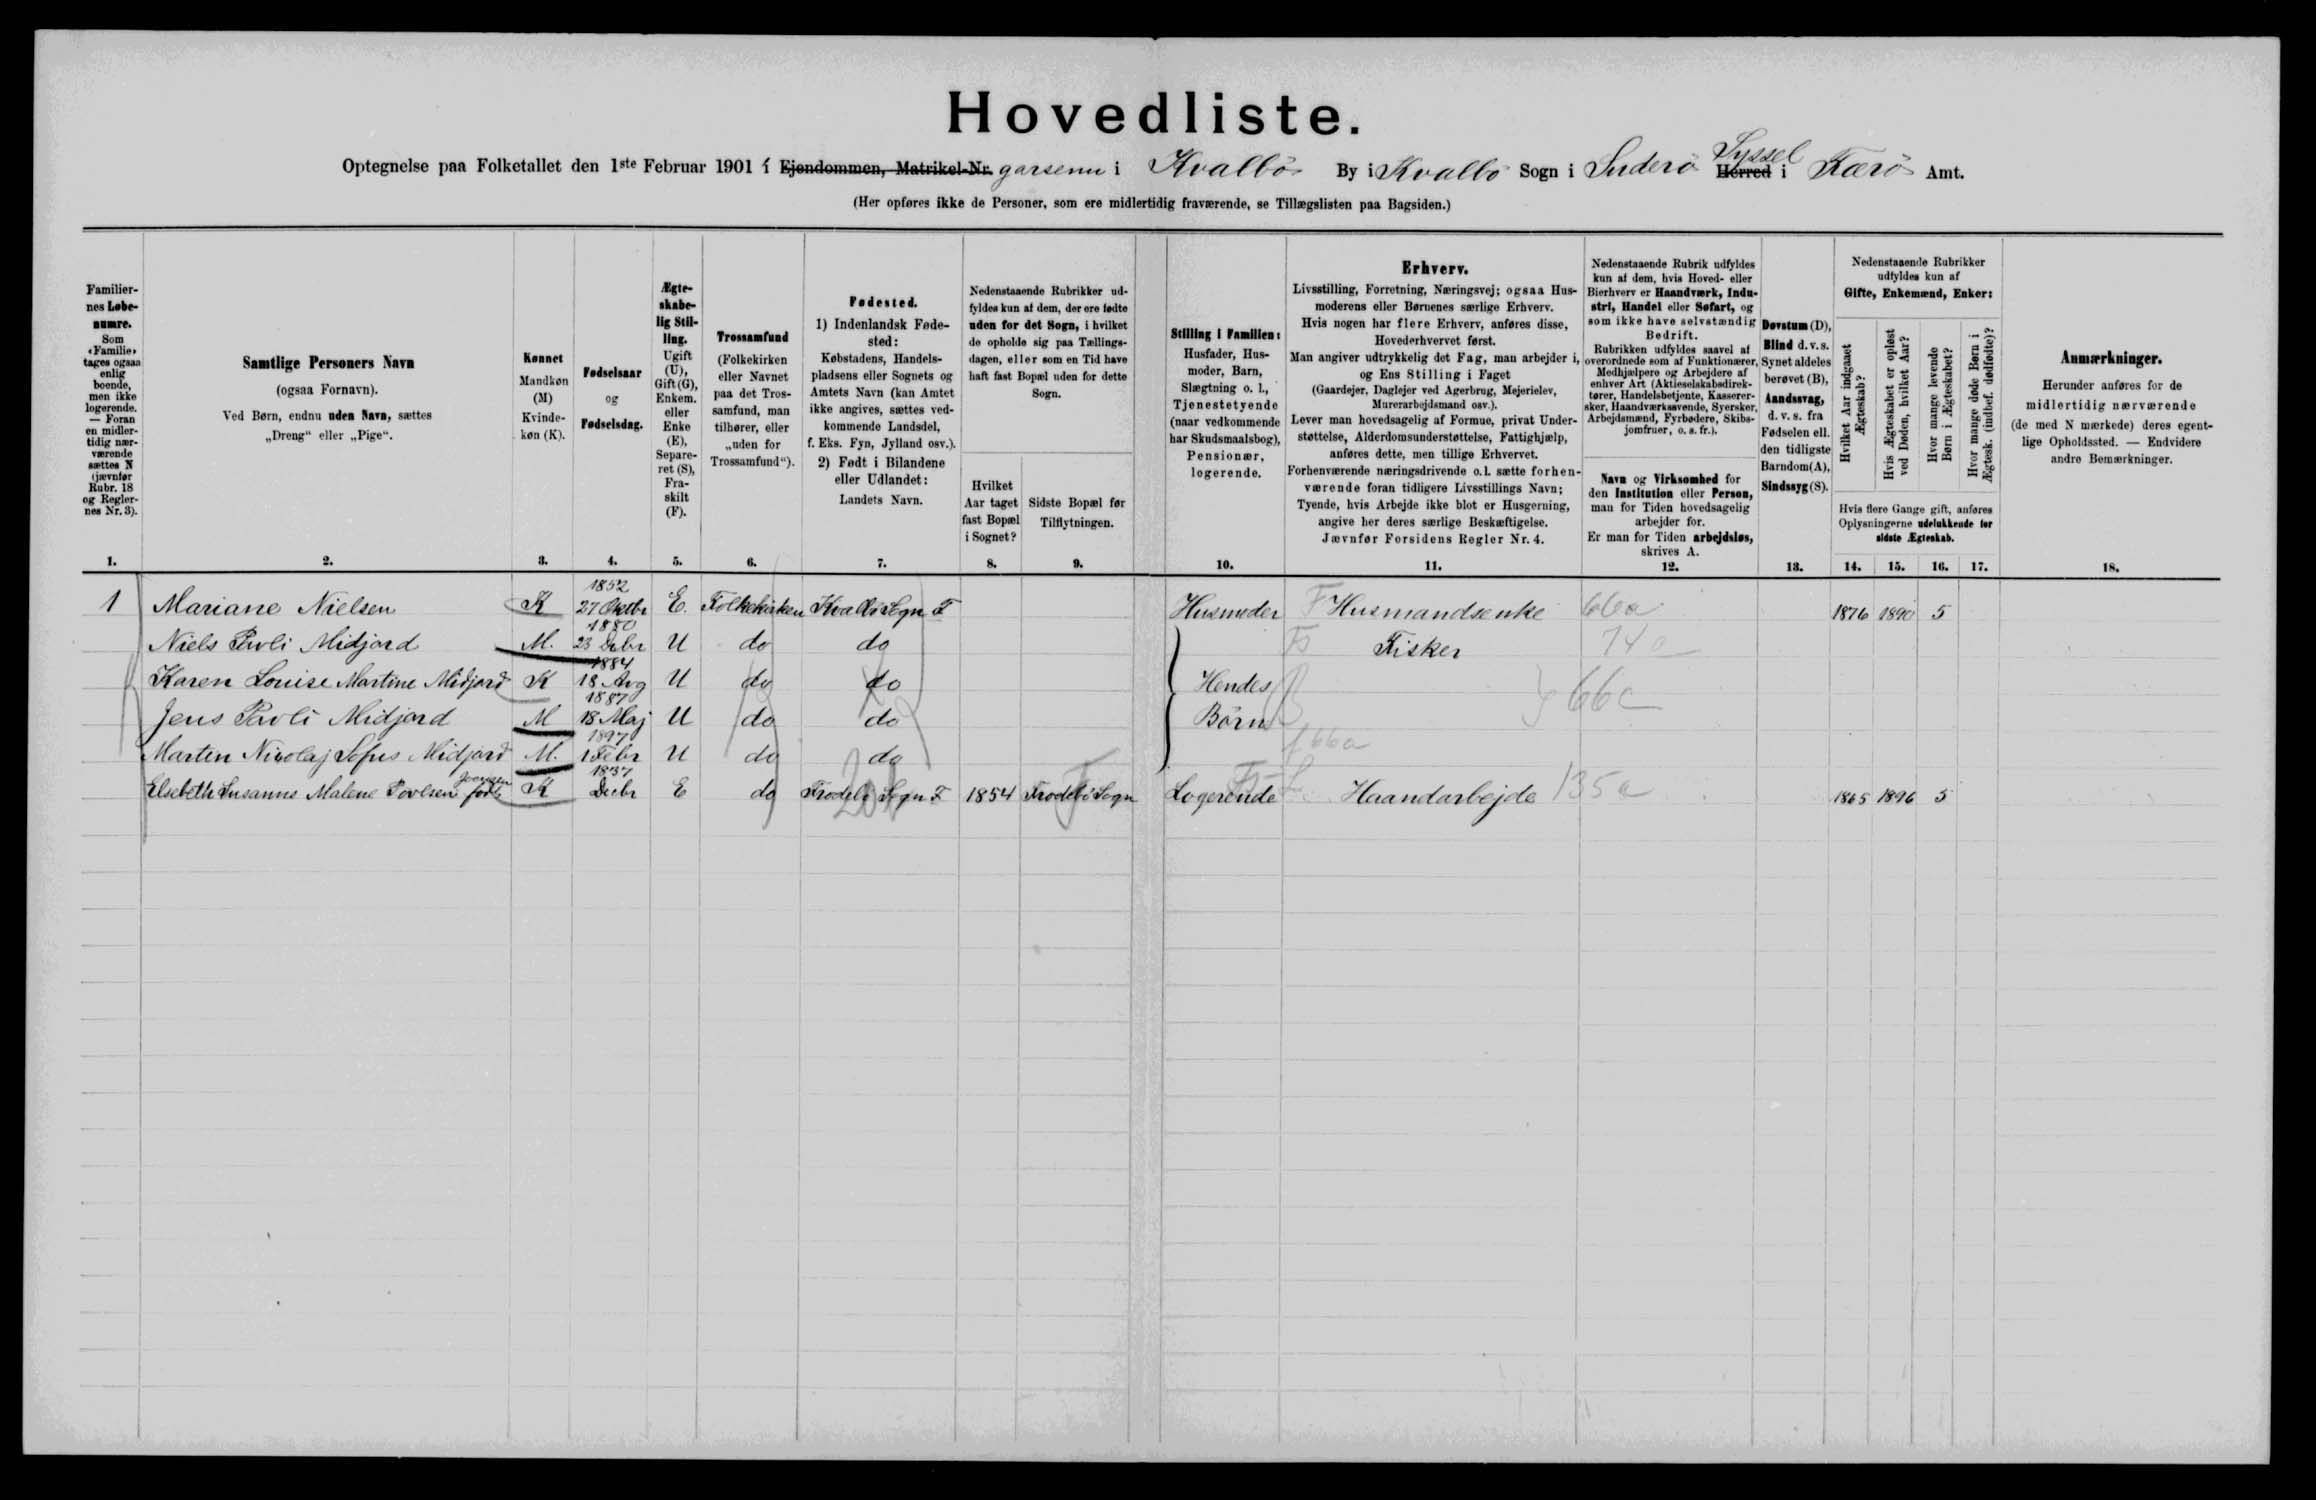 Hovedliste.
Optegnelse paa Folketallet den 1ste Februar 1901 i Ejendommen, Matrikel-Nr. garsenn i Kvalbö By i Kvalbö Sogn i Suderö Herred Syssel i Færö Amt.
(Her opføres ikke de Personer, som ere midlertidig fraværende, se Tillægslisten paa Bagsiden.)
Familiernes Løbenumre.
Som «Familie» tages ogsaa enlig boende, men ikke logerende. — Foran en midlertidig nærværende sættes N (jævnfør Rubr. 18 og Reglernes Nr. 3).
1.
Samtlige Personers Navn
(ogsaa Fornavn).
Ved Børn, endnu uden Navn, sættes
„Dreng“ eller „Pige“.
2.
Kønnet
Mandkøn
(M)
Kvinde-
køn (K).
3.
Fødselsaar
og
Fødselsdag.
4.
Ægte-
skabe-
lig Stil-
ling.
Ugift
(U),
Gift (G),
Enkem.
eller
Enke
(E),
Separe-
ret (S),
Fra-
skilt
(F).
5.
Trossamfund
(Folkekirken
eller Navnet
paa det Tros-
samfund, man
tilhører, eller
„uden for
Trossamfund“).
6.
Fødested.
1) Indenlandsk Føde-
sted:
Købstadens, Handels-
pladsens eller Sognets og
Amtets Navn (kan Amtet
ikke angives, sættes ved-
kommende Landsdel,
f. Eks. Fyn, Jylland osv.).
2) Født i Bilandene
eller Udlandet:
Landets Navn.
7.
Nedenstaaende Rubrikker ud-
fyldes kun af dem, der ere fødte
uden for det Sogn, i hvilket
de opholde sig paa Tællings-
dagen, eller som en Tid have
haft fast Bopæl uden for dette
Sogn.
Hvilket
Aar taget
fast Bopæl
i Sognet?
8.
Sidste Bopæl før
Tilflytningen.
9.
Stilling i Familien:
Husfader, Hus-
moder, Barn,
Slægtning o. l.,
Tjenestetyende
(naar vedkommende
har Skudsmaalsbog),
Pensionær,
logerende.
10.
Erhverv.
Livsstilling, Forretning, Næringsvej; ogsaa Hus-
moderens eller Børnenes særlige Erhverv.
Hvis nogen har flere Erhverv, anføres disse,
Hovederhvervet først.
Man angiver udtrykkelig det Fag, man arbejder i,
og Ens Stilling i Faget
(Gaardejer, Daglejer ved Agerbrug, Mejerielev,
Murerarbejdsmand osv.).
Lever man hovedsagelig af Formue, privat Under-
støttelse, Alderdomsunderstøttelse, Fattighjælp,
anføres dette, men tillige Erhvervet.
Forhenværende næringsdrivende o. l. sætte forhen-
værende foran tidligere Livsstillings Navn;
Tyende, hvis Arbejde ikke blot er Husgerning,
angive her deres særlige Beskæftigelse.
Jævnfør Forsidens Regler Nr. 4.
11.
Nedenstaaende Rubrik udfyldes
kun af dem, hvis Hoved- eller
Bierhverv er Haandværk, Indu-
stri, Handel eller Søfart, og
som ikke have selvstændig
Bedrift.
Rubrikken udfyldes saavel af
overordnede som af Funktionærer,
Medhjælpere og Arbejdere af
enhver Art (Aktieselskabsdirek-
tører, Handelsbetjente, Kasserer-
sker, Haandværkssvende, Syersker,
Arbejdsmænd, Fyrbødere, Skibs-
jomfruer, o. s. fr.).
Navn og Virksomhed for
den Institution eller Person,
man for Tiden hovedsagelig
arbejder for.
Er man for Tiden arbejdsløs,
skrives A.
12.
Døvstum (D),
Blind d. v. s.
Synet aldeles
berøvet (B),
Aandssvag,
d. v. s. fra
Fødselen ell.
den tidligste
Barndom (A),
Sindssyg (S).
13.
Nedenstaaende Rubrikker
udfyldes kun af
Gifte, Enkemænd, Enker:
Hvilket Aar indgaaet
Ægteskab?
Hvis Ægteskabet er opløst
ved Døden, hvilket Aar?
Hvor mange levende
Børn i Ægteskabet?
Hvor mange døde Børn i
Ægtesk. (indbef. dødfødte)?
Hvis flere Gange gift, anføres
Oplysningerne udelukkende for
sidste Ægteskab.
14. 15. 16. 17.
Anmærkninger.
Herunder anføres for de
midlertidig nærværende
(de med N mærkede) deres egent-
lige Opholdssted. — Endvidere
andre Bemærkninger.
18.
1 Mariane Nielsen K 1852 27 Oktbr E. Folkekirken Kvalbö Sogn F Husmoder F Husmandsenke 66a 1876 1890 5
Niels Povli Midjord M. 1880 23 Debr U do do Fisker 74a
Karen Louise Martine Midjord K 1884 18 Avg U do do Hendes 66a
Jens Povli Midjord M 1887 18 Maj U do do Börn
Marten Nicolaj Sofus Midjord M. 1897 1 Febr U do do 66a
Elsebeth Susanne Malene Povlsen född Joensen K 1837 Debr E do Frodebö Sogn F 1854 Frodebö Sogn Logerende Haandarbejde 135a 1865 1896 5